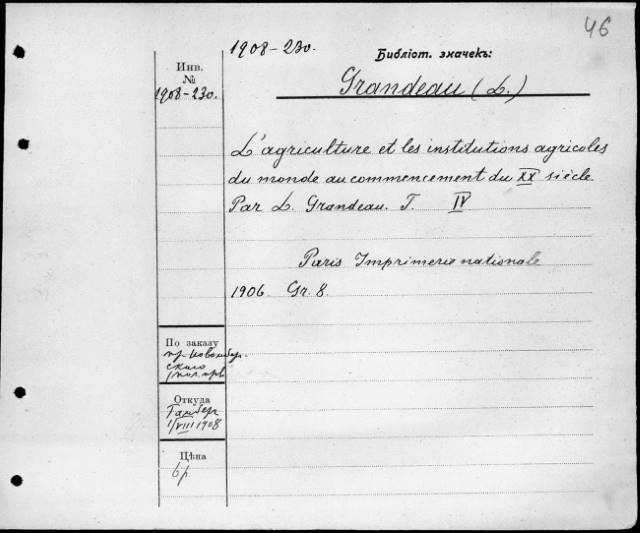 46
1908-230.
Библіот. значекъ:
Инв.
№
1908-230.
Grandeau (L.)
L'agriculture et les institutions agricoles
du monde au commencement du XX siècle
Par L. Grandeau. T. IV
Paris Imprimerie nationale
1906. Gr. 8.
По заказу
пр.
Откуда
1/VIII 1908
Цѣна
6 р.